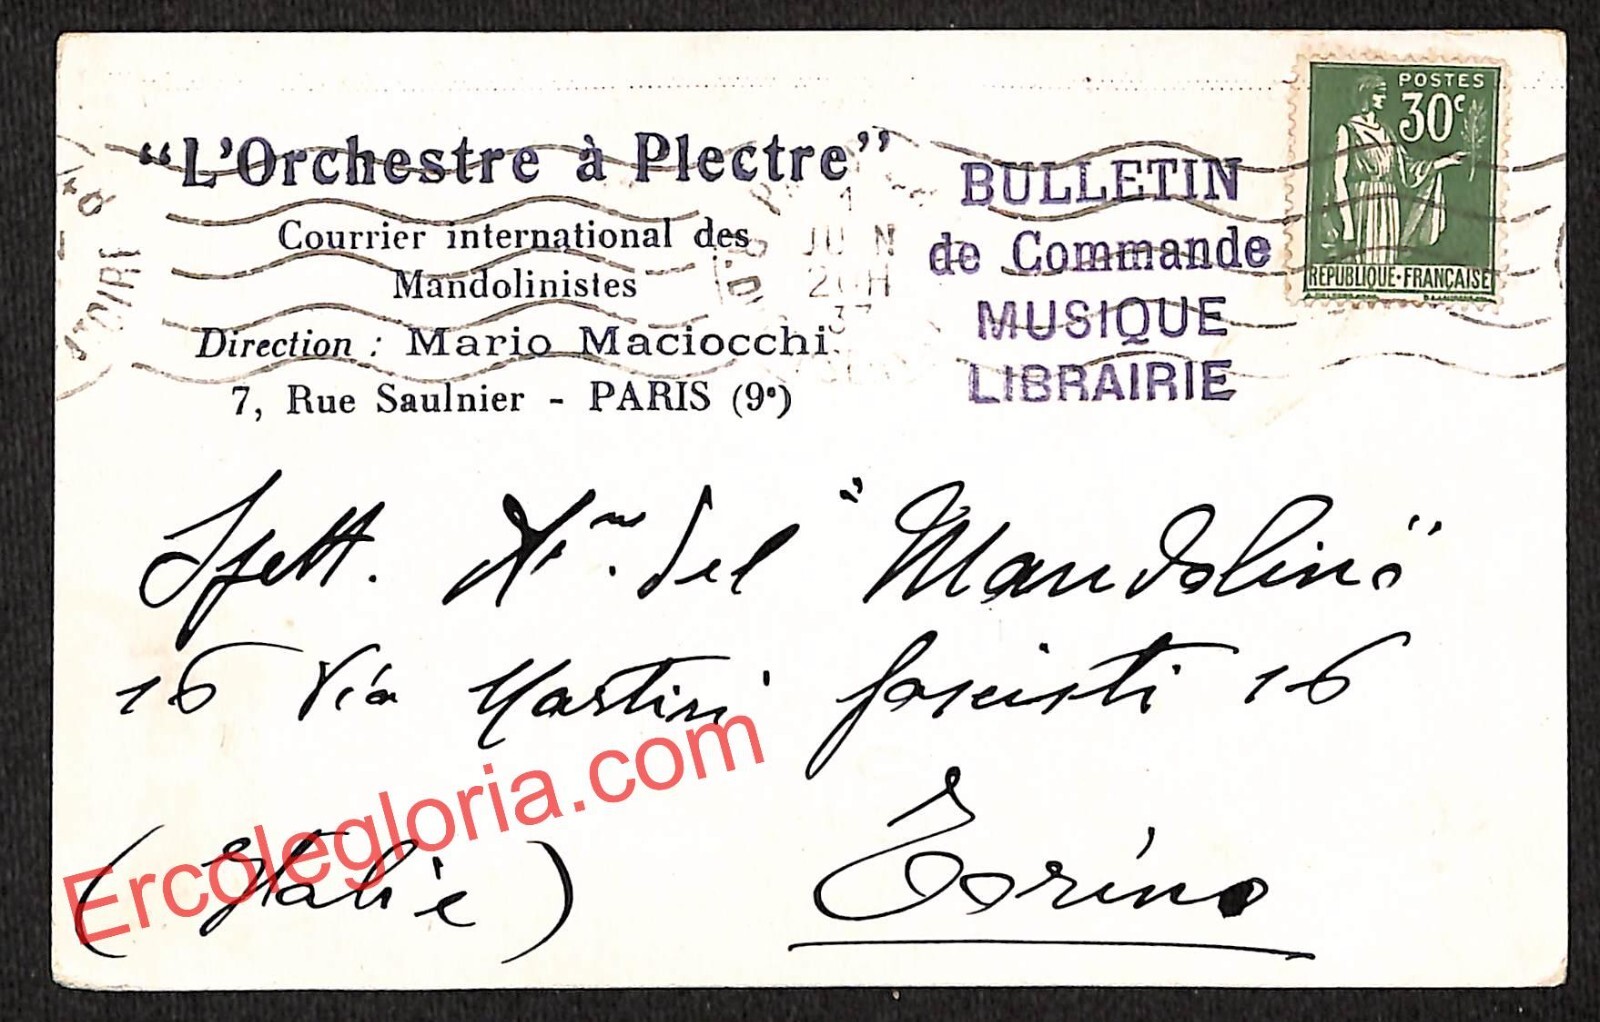 "L'Orchestre à Plectre"
Courrier international des
Mandolinistes
Direction : Mario Maciocchi
7, Rue Saulnier - PARIS (9e)
BULLETIN
de Commande
MUSIQUE
LIBRAIRIE
POSTES
30c
REPUBLIQUE·FRANÇAISE
1
JUIN
20H
37
Spett. Don. del "Mandolino"
16 Via Martiri fascisti 16
Torino
(Italie)
Ercolegloria.com